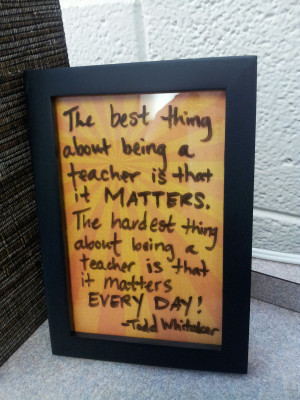 The best thing
about being a
teacher is that
it MATTERS.
The hardest thing
about being a
teacher is that
it matters
EVERY DAY!
-Todd Whitaker